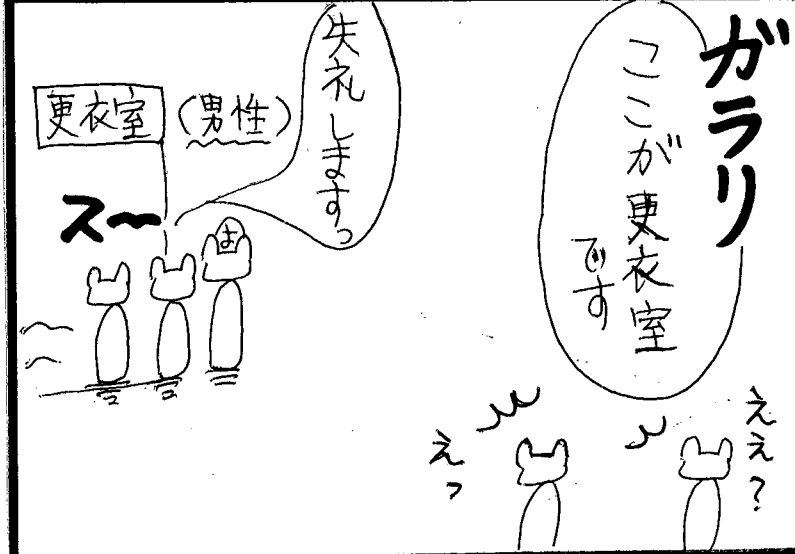 ガラリ
ここが更衣室
です
ええ?
えっ
失礼しますっ
更衣室(男性)
ス〜
よ